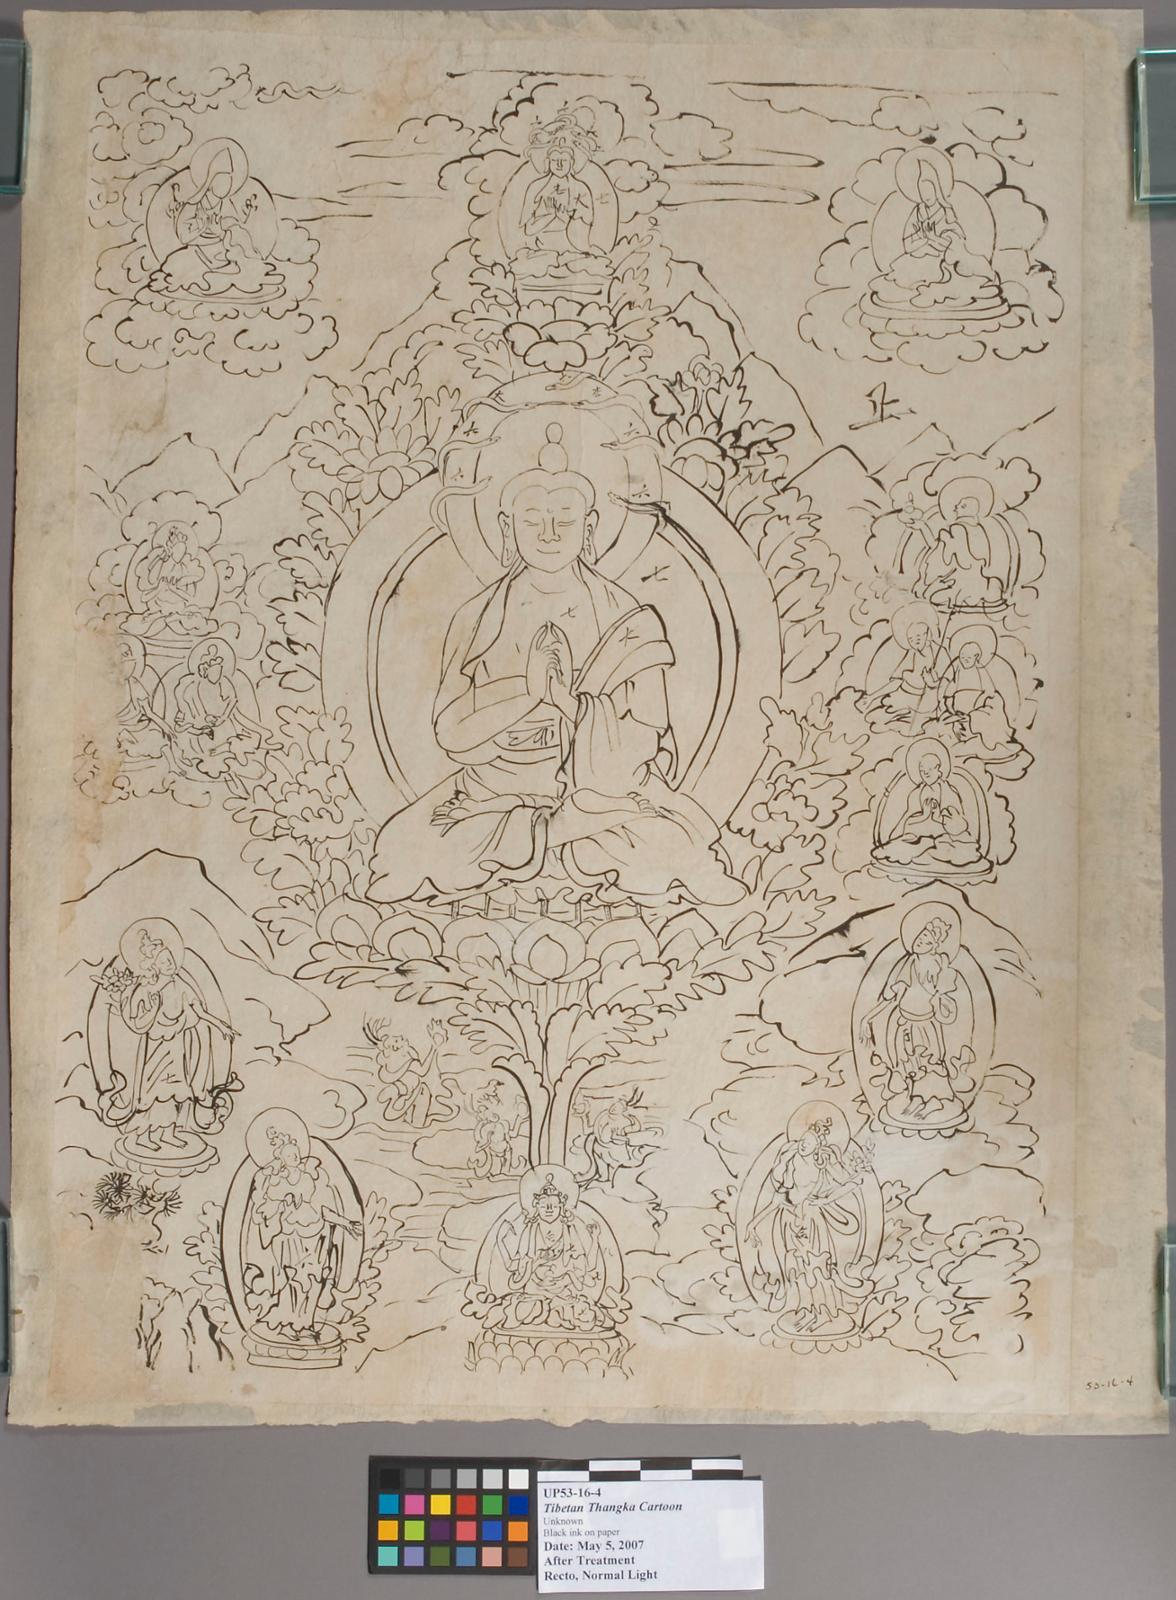 七
大
七
六
六
六
六
七
七
大
七
止
53-16-4
UP53-16-4
Tibetan Thangka Cartoon
Unknown
Black ink on paper
Date: May 5, 2007
After Treatment
Recto, Normal Light